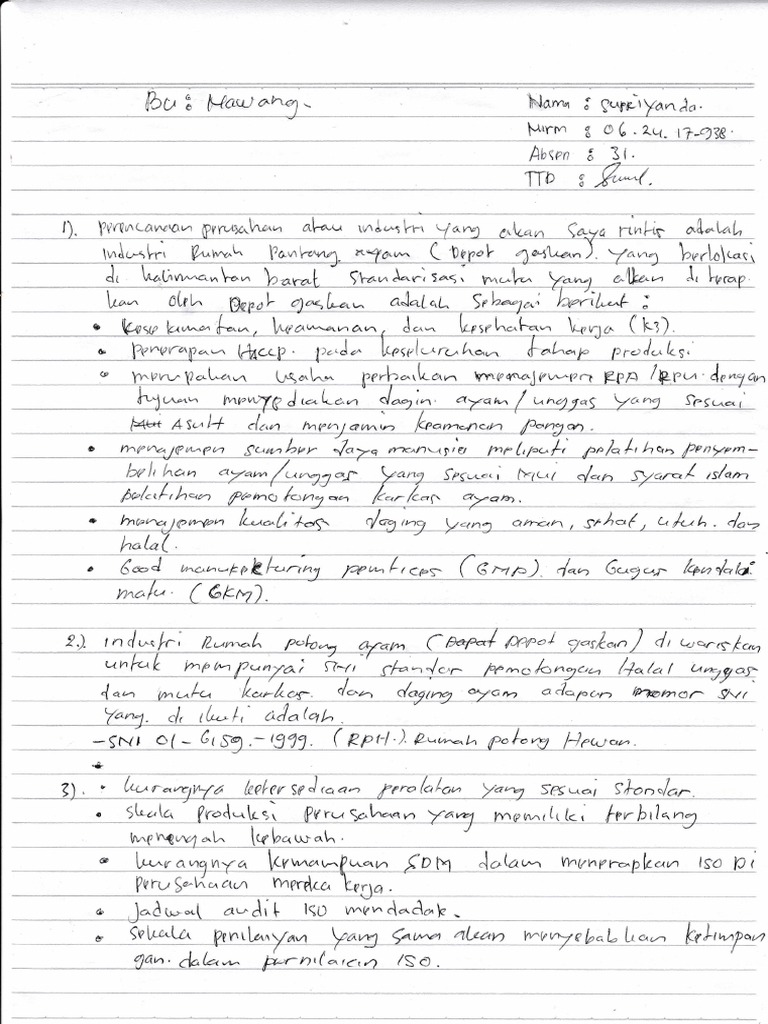 Bu : Mawang.
Nama : Supriyanda.
Nirm : 06.24.17-938.
Absen : 31.
TTD :
1). perencanaan perusahan atau industri yang akan saya rintis adalah
Industri Rumah Pantang ayam (Depot gaskan). yang berlokasi
di kalimantan barat standarisasi mutu yang akan di terap-
kan oleh Depot gaskan adalah sebagai berikut :
• kese kamatan, keamanan, dan kesehatan kerja (k3).
• penerapan Haccp. pada keseluruhan tahap produksi
• merupakan usaha perbaikan menajemen RPA/RPU dengan
tujuan menyediakan dagin ayam/unggas yang sesuai
ASUH dan menjamin keamanan pangan.
• menajemen sumber daya manusia meliputi pelatihan penyem-
belihan ayam/unggas yang sesuai MUI dan syarat islam
pelatihan pemotongan karkas ayam.
• manajemen kualitas daging yang aman, sehat, utuh. dan
halal.
• Good manukekturing pemtices (GMP). dan Gugus kendali
matu. (GKM).
2.). industri Rumah potong ayam (Depot gaskan) di wariskan
untuk mempunyai SNI standar pemotongan Halal unggas
dan mutu karkas. dan daging ayam adapan nomor SNI
yang. di ikuti adalah.
-SNI 01-6159.-1999. (RPH.). Rumah potong Hewan.
3). • kurangnya ketersediaan peralatan yang sesuai standar.
• skala produksi perusahaan yang memiliki terbilang
menengah kebawah.
• kurangnya kemampuan SDM dalam menerapkan ISO Di
perusahaan mereka kerja.
• jadwal audit ISO mendadak.
• sekala penilaiyan yang sama akan menyebabkan ketimpan
gan. dalam pernilaian ISO.